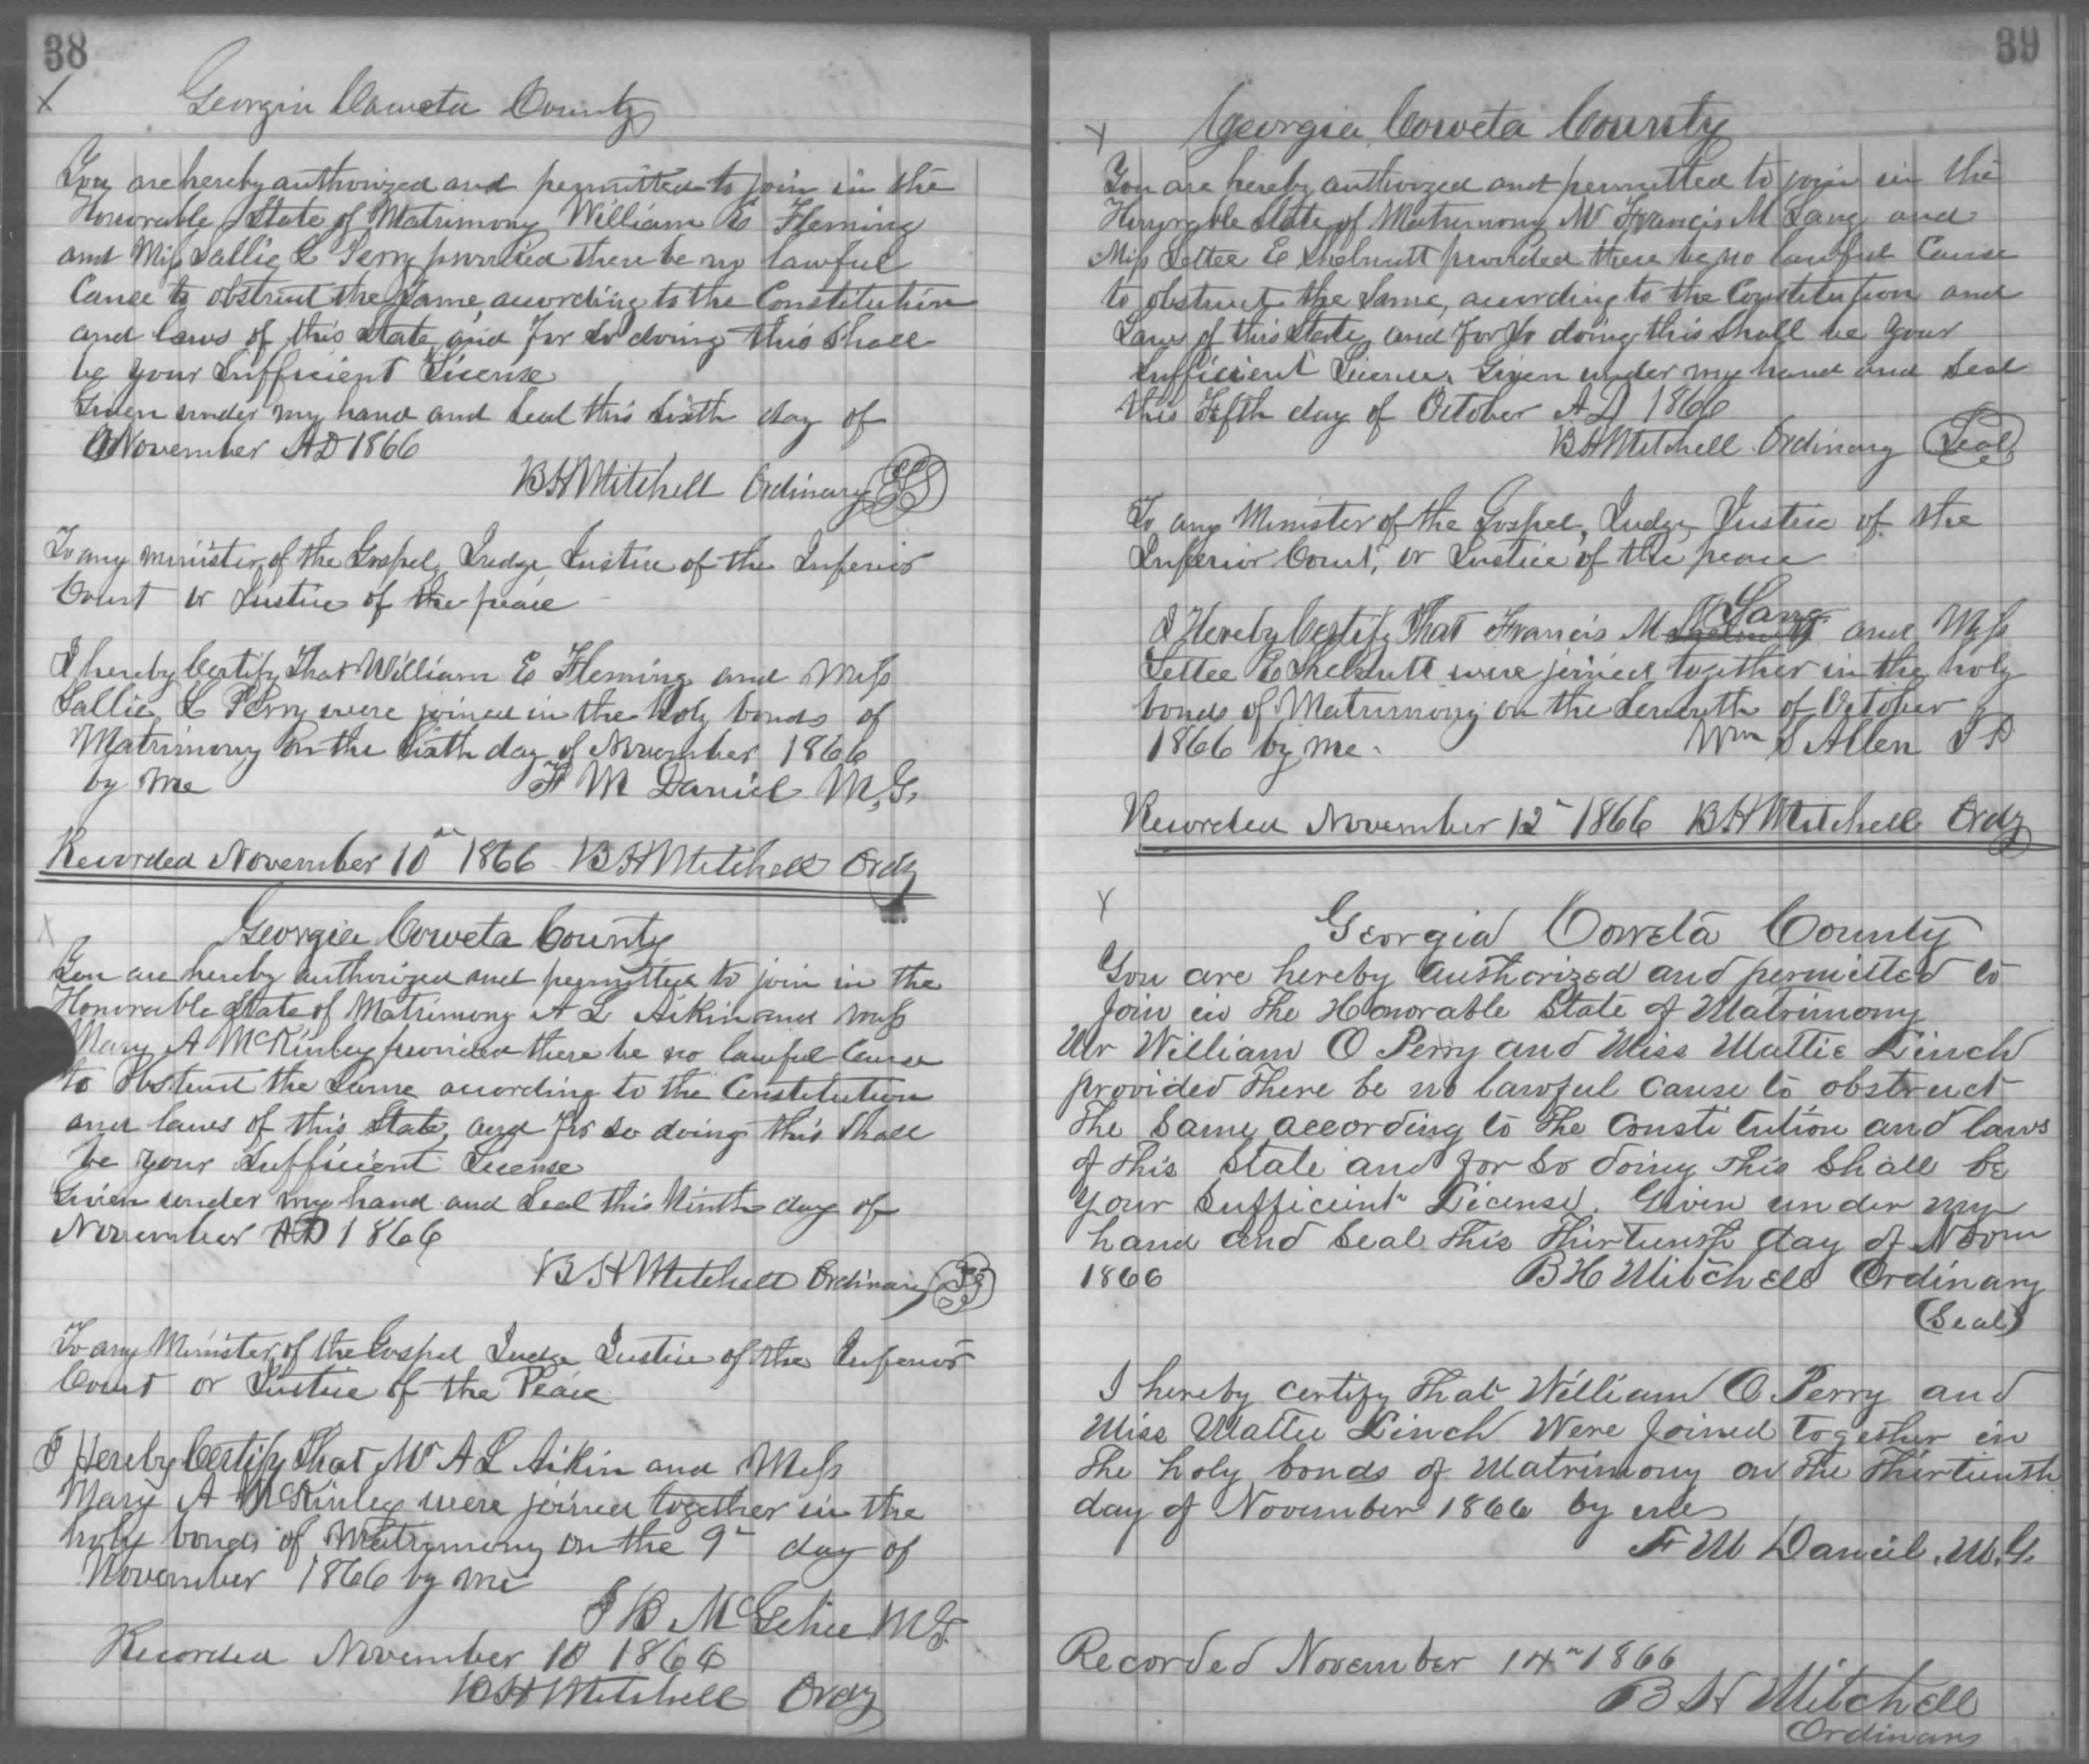 38
X Georgia Coweta County
You are hereby authorized and permitted to join in the
Honorable State of Matrimony William E Fleming
and Miss Sallie L Perry provided there be no lawful
Cause to obstruct the Same, according to the Constitution
and laws of this State and for so doing this Shall
be your Sufficient License
Given under my hand and Seal this Sixth day of
November AD 1866
B H Mitchell Ordinary LS
To any minister of the Gospel, Judge, Justice of the Inferior
Court or Justice of the peace
I hereby Certify That William E Fleming and Miss
Sallie L Perry were joined in the holy bonds of
Matrimony On the Sixth day of November 1866
by me F M Daniel M.G.
Recorded November 10th 1866 B H Mitchell Ordy
X Georgia Coweta County
You are hereby authorized and permitted to join in the
Honorable State of Matrimony A L Aikin and Miss
Mary A McKinley provided there be no lawful Cause
to Obstruct the Same according to the Constitution
and laws of this State, and for so doing this Shall
be your Sufficient License
Given under my hand and Seal this Ninth day of
November AD 1866
B H Mitchell Ordinary
To any Minister of the Gospel Judge Justice of the Inferior
Court or Justice of the Peace
I Hereby Certify That Mr A L Aikin and Miss
Mary A McKinley were joined together in the
holy bonds of Matrimony on the 9th day of
November 1866 by me
McGehee M G
Recorded November 10 1866
B H Mitchell Ordy
39
X Georgia Coweta County
You are hereby authorized and permitted to join in the
Honorable State of Matrimony Mr Francis M Lang and
Miss Lettee E Shelnutt provided there be no lawful Cause
to obstruct the Same, according to the Constitution and
Laws of this State, and For So doing this Shall be your
Sufficient License. Given under my hand and Seal
this Fifth day of October AD 1866
B H Mitchell Ordinary Seal
To any Minister of the Gospel, Judge, Justice of the
Inferior Court, or Justice of the peace
Lang
I Hereby Certify That Francis M Shelnutt and Miss
Lettee E Shelnutt were joined together in the holy
bonds of Matrimony on the Seventh of October
1866 by me. Wm S Allen J P
Recorded November 12th 1866 B H Mitchell Ordy
X
Georgia Coweta County
You are hereby Authorized and permitted to
Join in The Honorable State of Matrimony
Mr William O Perry and Miss Mattie Linch
provided There be no lawful cause to obstruct
The Same according to The Constitution and laws
of This State and for So doing This Shall be
your Sufficient License. Given under my
hand and Seal This Thirteenth day of Novm
1866 B H Mitchell Ordinary
(Seal)
I hereby certify That William O Perry and
Miss Mattie Linch Were Joined together in
The holy bonds of Matrimony on The Thirteenth
day of November 1866 by me
F M Daniel. M.G.
Recorded November 14th 1866
B H Mitchell
Ordinary